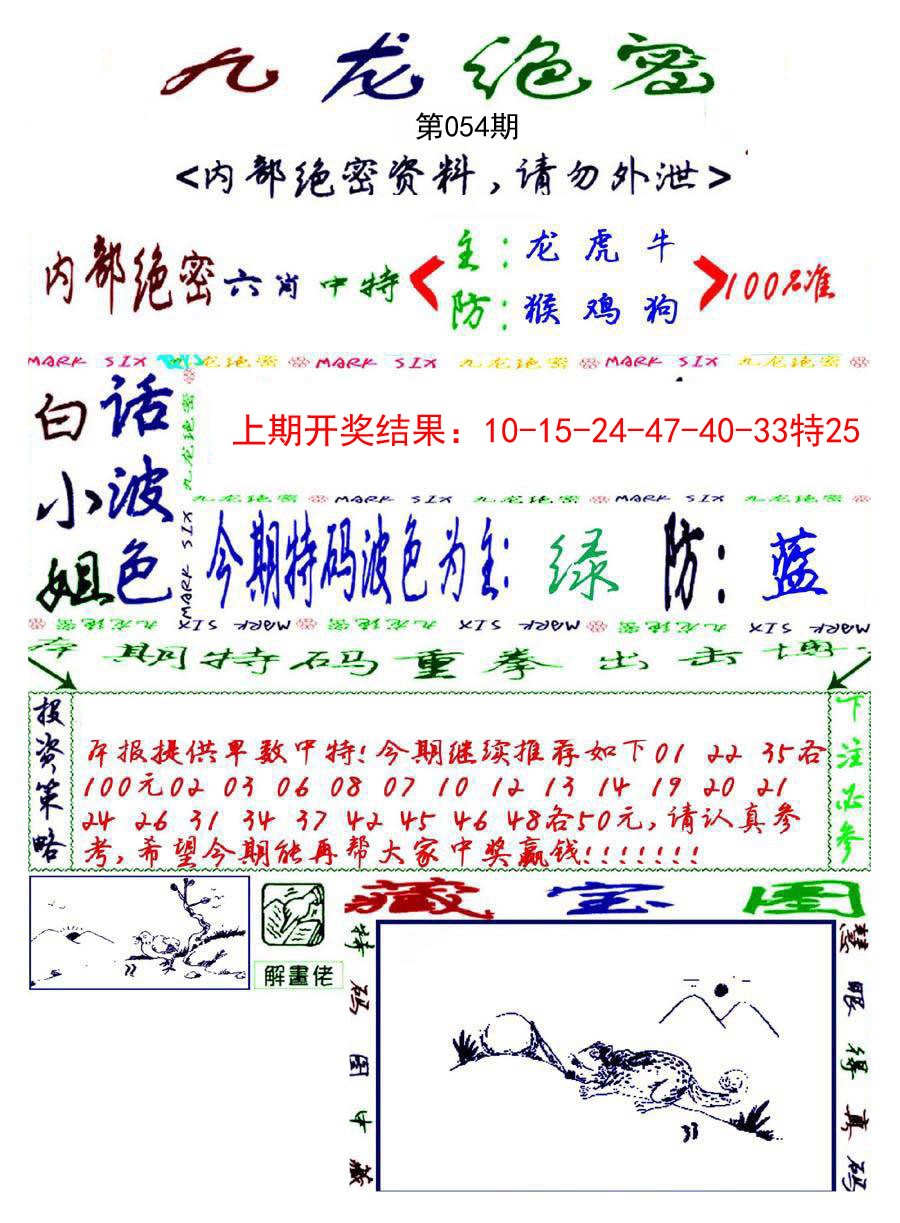 九龙绝密
第054期
<内部绝密资料,请勿外泄>
内部绝密六肖中特
主:龙虎牛
防:猴鸡狗
100%准
MARK SIX 九龙绝密 MARK SIX 九龙绝密 MARK SIX 九龙绝密
白话
小波
姐色
九龙绝密
MARK SIX
上期开奖结果：10-15-24-47-40-33特25
九龙绝密 MARK SIX 九龙绝密 MARK SIX 九龙绝密
今期特码波色为主:绿 防:蓝
九龙绝密 MARK SIX 九龙绝密 MARK SIX 九龙绝密 MARK SIX
本期特码重拳出击博
投资策略
本报提供单数中特!今期继续推荐如下01 22 35各
100元02 03 06 08 07 10 12 13 14 19 20 21
24 26 31 34 37 42 45 46 48各50元,请认真参
考,希望今期能再帮大家中奖赢钱!!!!!!!
下注必参
解畫佬
藏宝图
特码图中藏
慧眼得真码
33